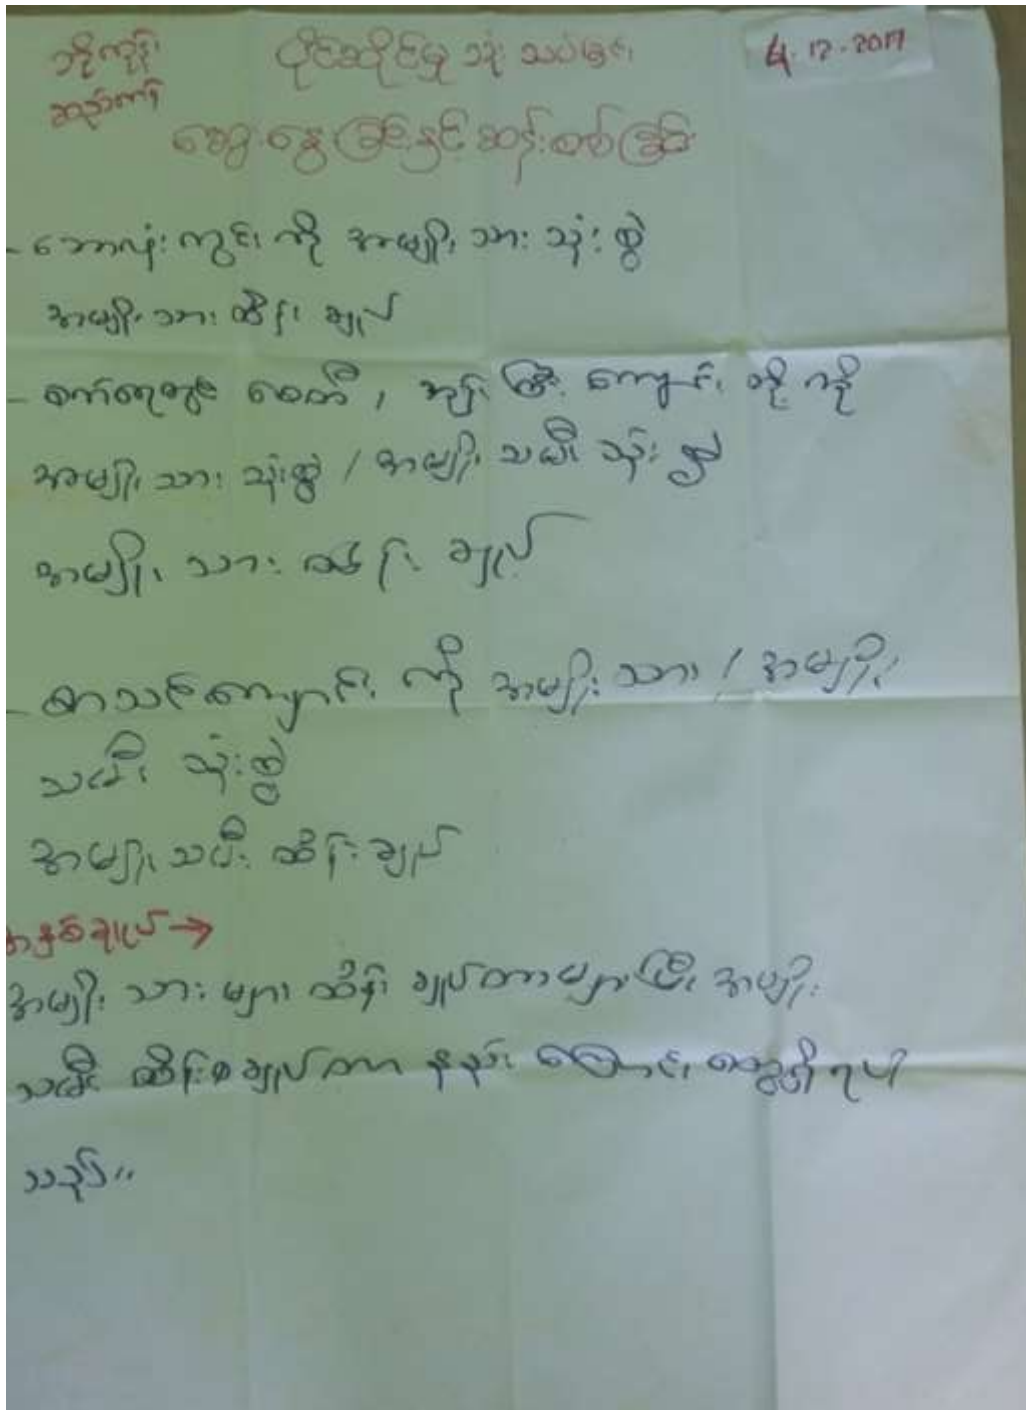 ဘိုကုန်း
ပိုင်ဆိုင်မှု သုံးသပ်ခြင်း
4.12.2017
ဆွေးနွေးခြင်းနှင့် ဆန်းစစ်ခြင်း
- ဘောလုံးကွင်း ကို အမျိုးသား သုံးစွဲ
အမျိုးသား ထိန်းချုပ်
စေတီ ၊ ဘုန်းကြီးကျောင်း တို့ ကို
အမျိုးသား သုံးစွဲ / အမျိုးသမီး သုံးစွဲ
အမျိုးသား ထိန်းချုပ်
- စာသင်ကျောင်း ကို အမျိုးသား / အမျိုး
သမီး သုံးစွဲ
အမျိုးသမီး ထိန်းချုပ်
အနှစ်ချုပ် →
အမျိုးသားများ ထိန်းချုပ်တာများပြီး အမျိုး
သမီး ထိန်းချုပ်တာ နည်းကြောင်း တွေ့ရှိရပါ
သည်။